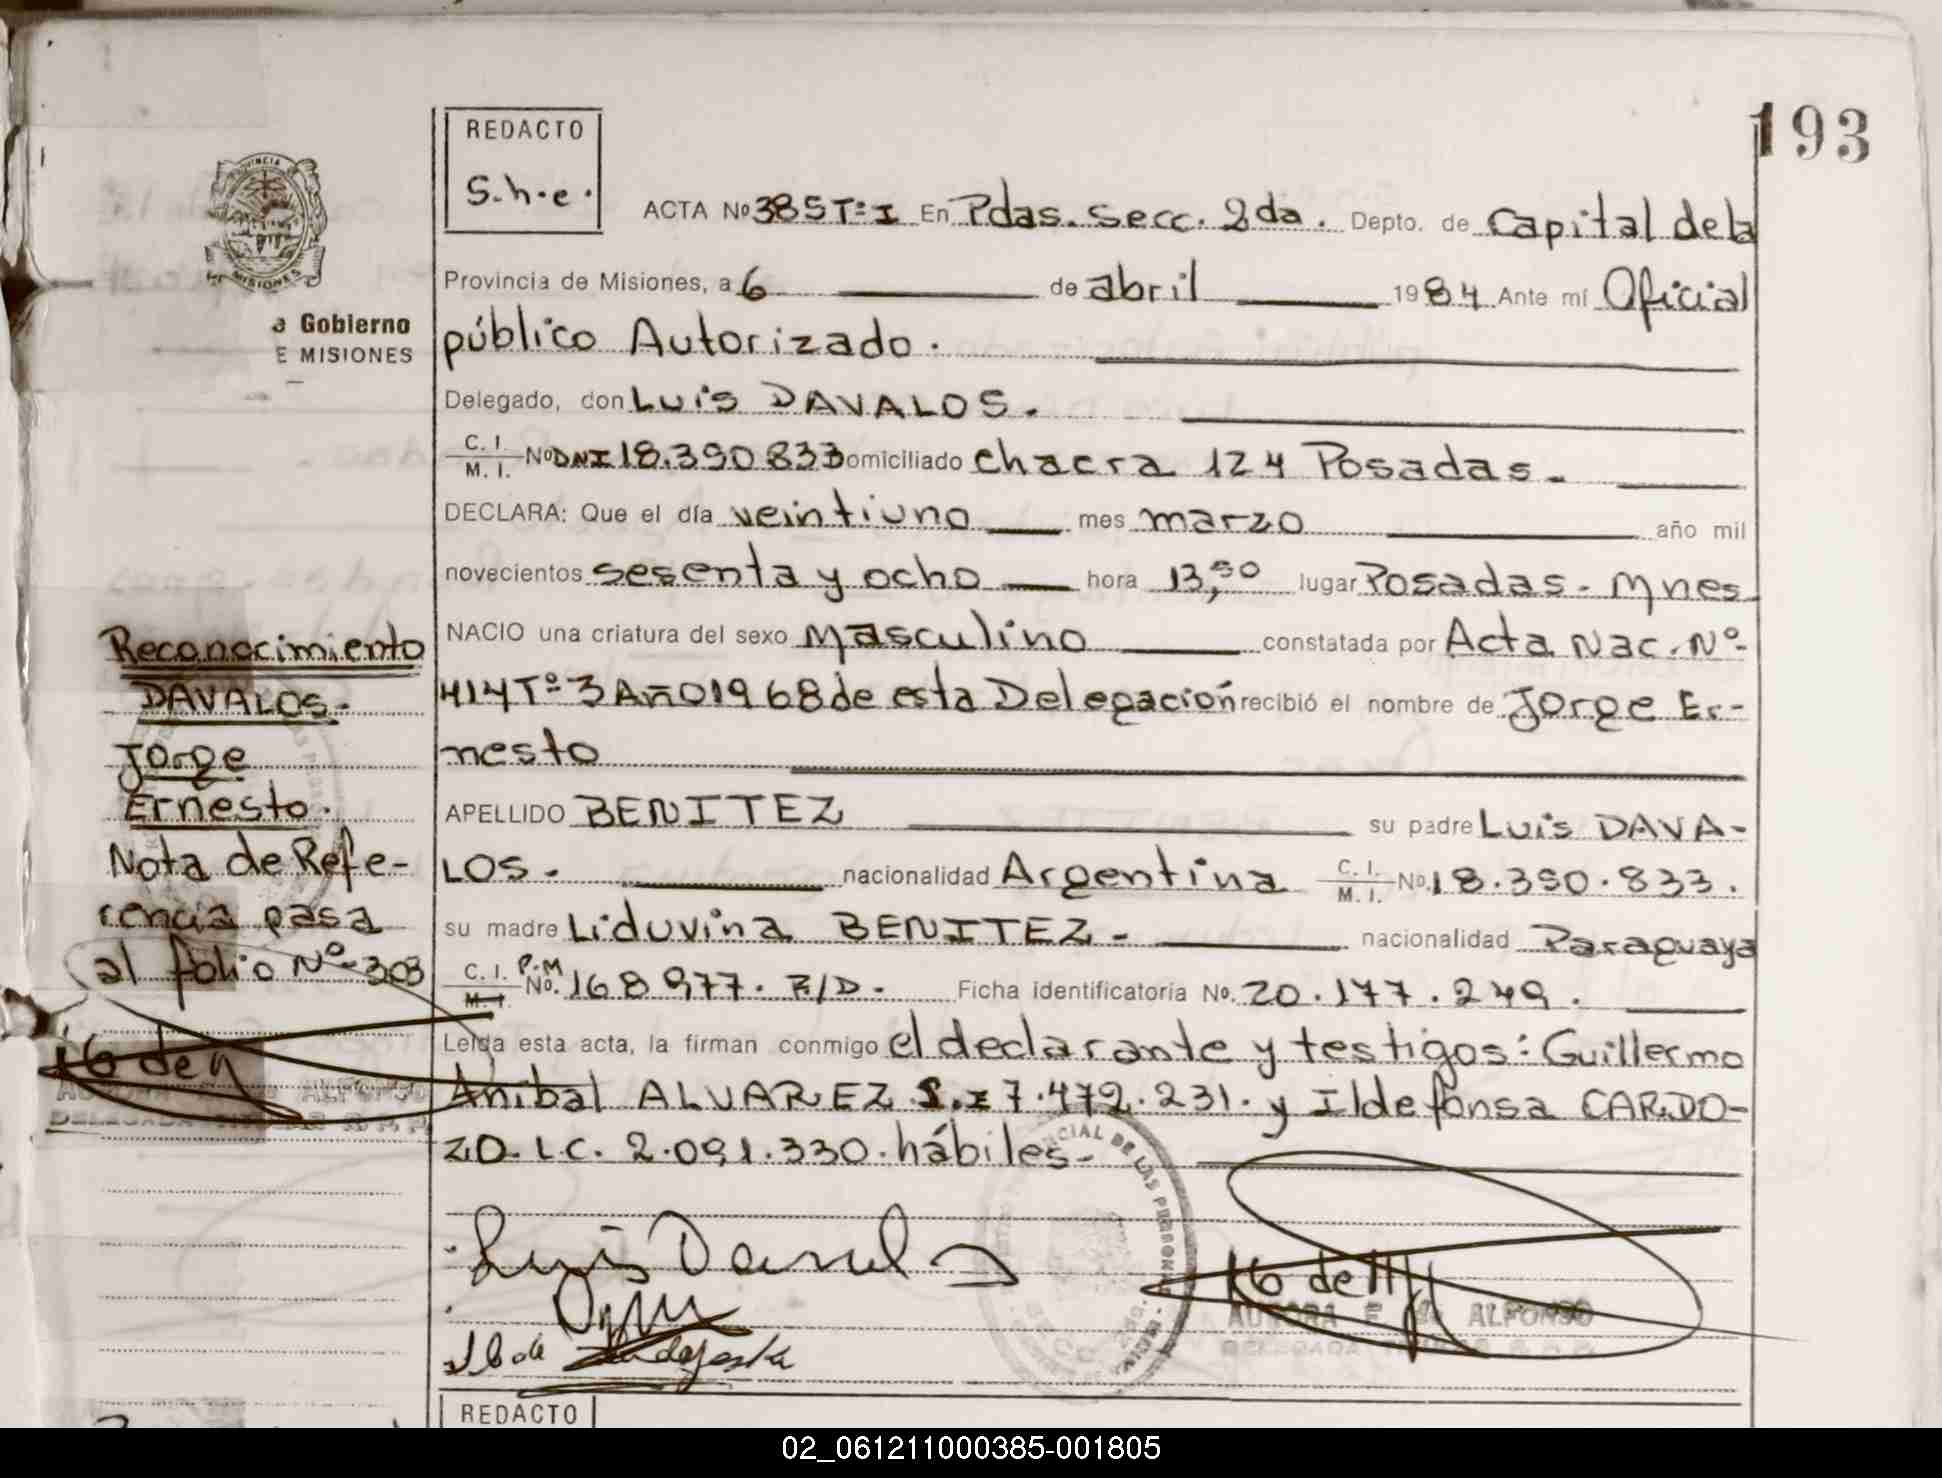 193
REDACTO
S.h.e.
ACTA Nº 385 Tº I En Pdas. Secc. 2da. Depto. de Capital de la
Provincia de Misiones, a 6 de abril 1984 Ante mí Oficial
público Autorizado.
Delegado, don Luis DAVALOS.
C. I. M. I. Nº DNI 18.390.833 Domiciliado chacra 124 Posadas.
DECLARA: Que el día veintiuno mes marzo año mil
novecientos sesenta y ocho hora 13,50 lugar Posadas - Mnes
NACIO una criatura del sexo Masculino constatada por Acta Nac. Nº-
414 Tº 3 Año 1968 de esta Delegación recibió el nombre de Jorge Er-
nesto
APELLIDO BENITEZ su padre Luis DAVA-
LOS. nacionalidad Argentina C. I. M. I. Nº 18.390.833.
su madre Liduvina BENITEZ - nacionalidad Paraguaya
C. I. M. I. P.M No. 168977. F/D. Ficha identificatoria No. 20.177.249.
Leída esta acta, la firman conmigo el declarante y testigos: Guillermo
Anibal ALVAREZ 7.472.231. y Ildefonsa CARDO-
ZO. L.C. 2.091.330. hábiles-
Luis Davalo
AURORA E. de ALFONSO
PROVINCIA
MISIONES
Gobierno
E MISIONES
Reconocimiento
DAVALOS.
Jorge
Ernesto.
Nota de Refe-
rencia pasa
al folio Nº 303
ALFONSO
REDACTO
02_061211000385-001805